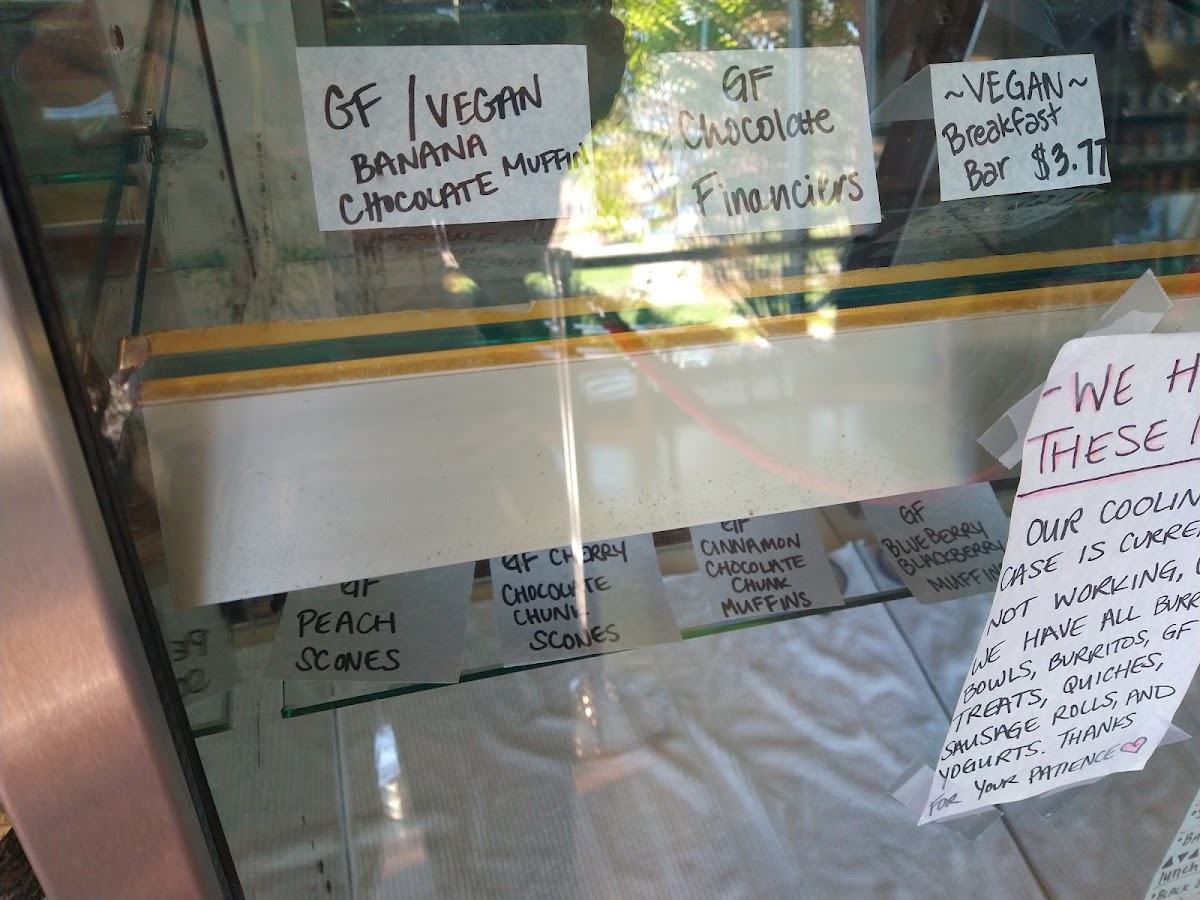 GF / VEGAN
BANANA
CHOCOLATE MUFFIN
GF
Chocolate
Financiers
~VEGAN~
Breakfast
Bar $3.77
GF
PEACH
SCONES
GF CHERRY
CHOCOLATE
CHUNK
SCONES
GF
CINNAMON
CHOCOLATE
CHUNK
MUFFINS
GF
BLUEBERRY
BLACKBERRY
MUFFIN
-WE H
THESE
OUR COOLIN
CASE IS CURRE
NOT WORKING,
WE HAVE ALL BURR
BOWLS, BURRITOS, GF
TREATS, QUICHES,
SAUSAGE ROLLS, AND
YOGURTS. THANKS
FOR YOUR PATIENCE ♡
lunch